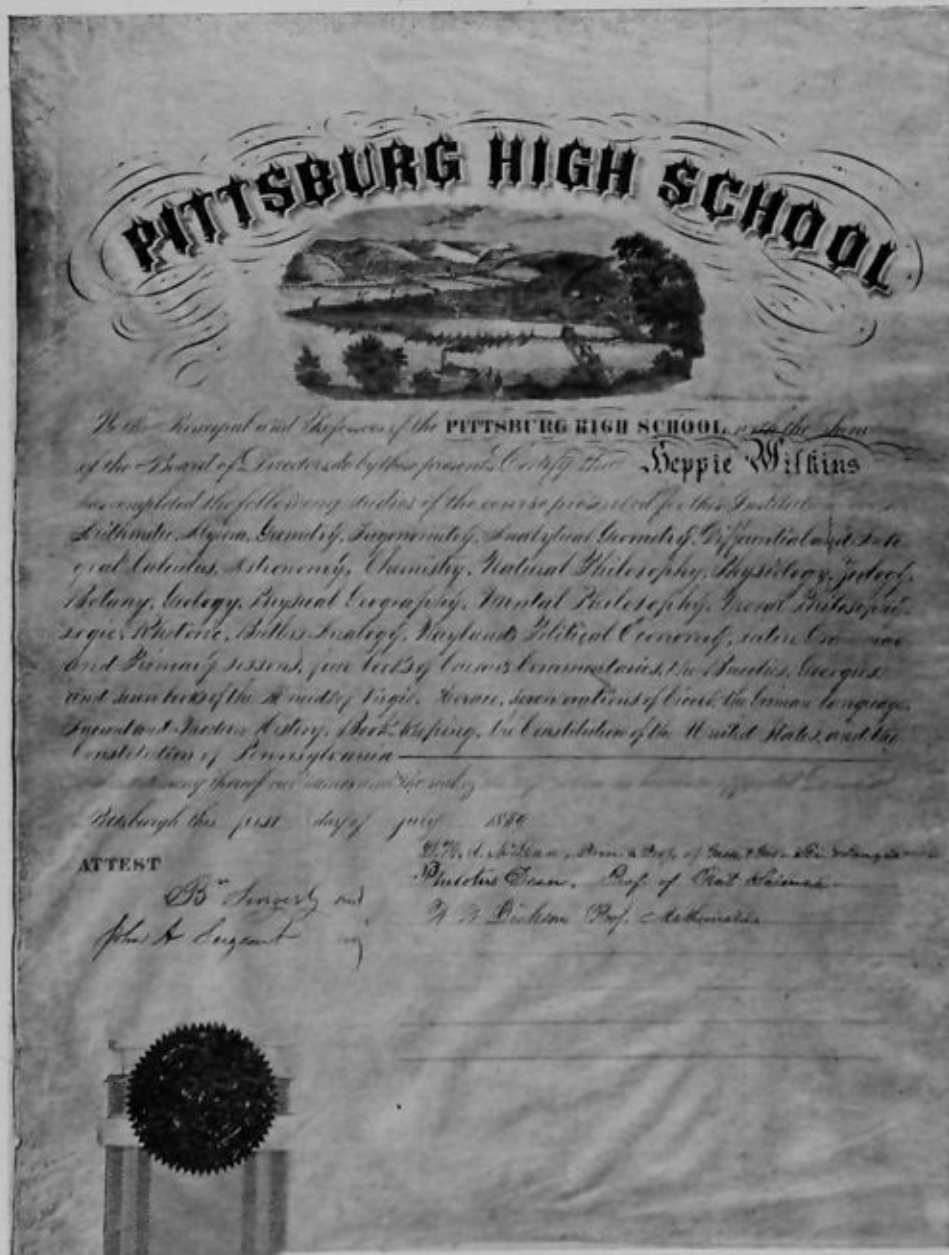 PITTSBURG HIGH SCHOOL
We the Principal and Professors of the PITTSBURG HIGH SCHOOL, with the
of the Board of Directors do by these presents Certify that Heppie Wilkins
has completed the following studies of the course prescribed for this Institution
Arithmetic, Algebra, Geometry, Trigonometry, Analytical Geometry, Differential and Inte
gral Calculus, Astronomy, Chemistry, Natural Philosophy, Physiology, Zoology,
Botany, Geology, Physical Geography, Mental Philosophy, Moral Philosophy,
Logic, Rhetoric, Butlers Analogy, Waylands Political Economy, Latin Grammar
and Primary Lessons, four books of Caesar's Commentaries, the Bucolics, Georgics
and seven books of the Aeneid of Virgil, Horace, seven orations of Cicero, the German language,
Ancient and Modern History, Book Keeping, the Constitution of the United States, and the
Constitution of Pennsylvania
testimony thereof our names and the seal
Pittsburgh this first day of July
ATTEST
Philotus Dean, Prof. of Nat Science
Dickson Prof. Mathematics
John A Sergeant